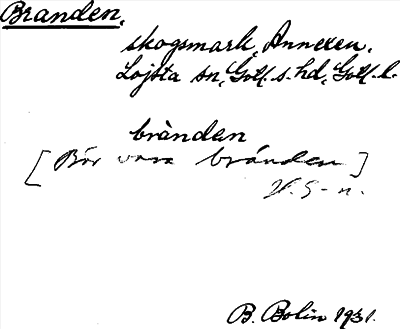 Branden,
skogsmark, Annexen,
Lojsta sn, Gotl. s. hd, Gotl. l.
brànden
[Bör vara bránden]
H. G-n.
B. Bolin 1931.